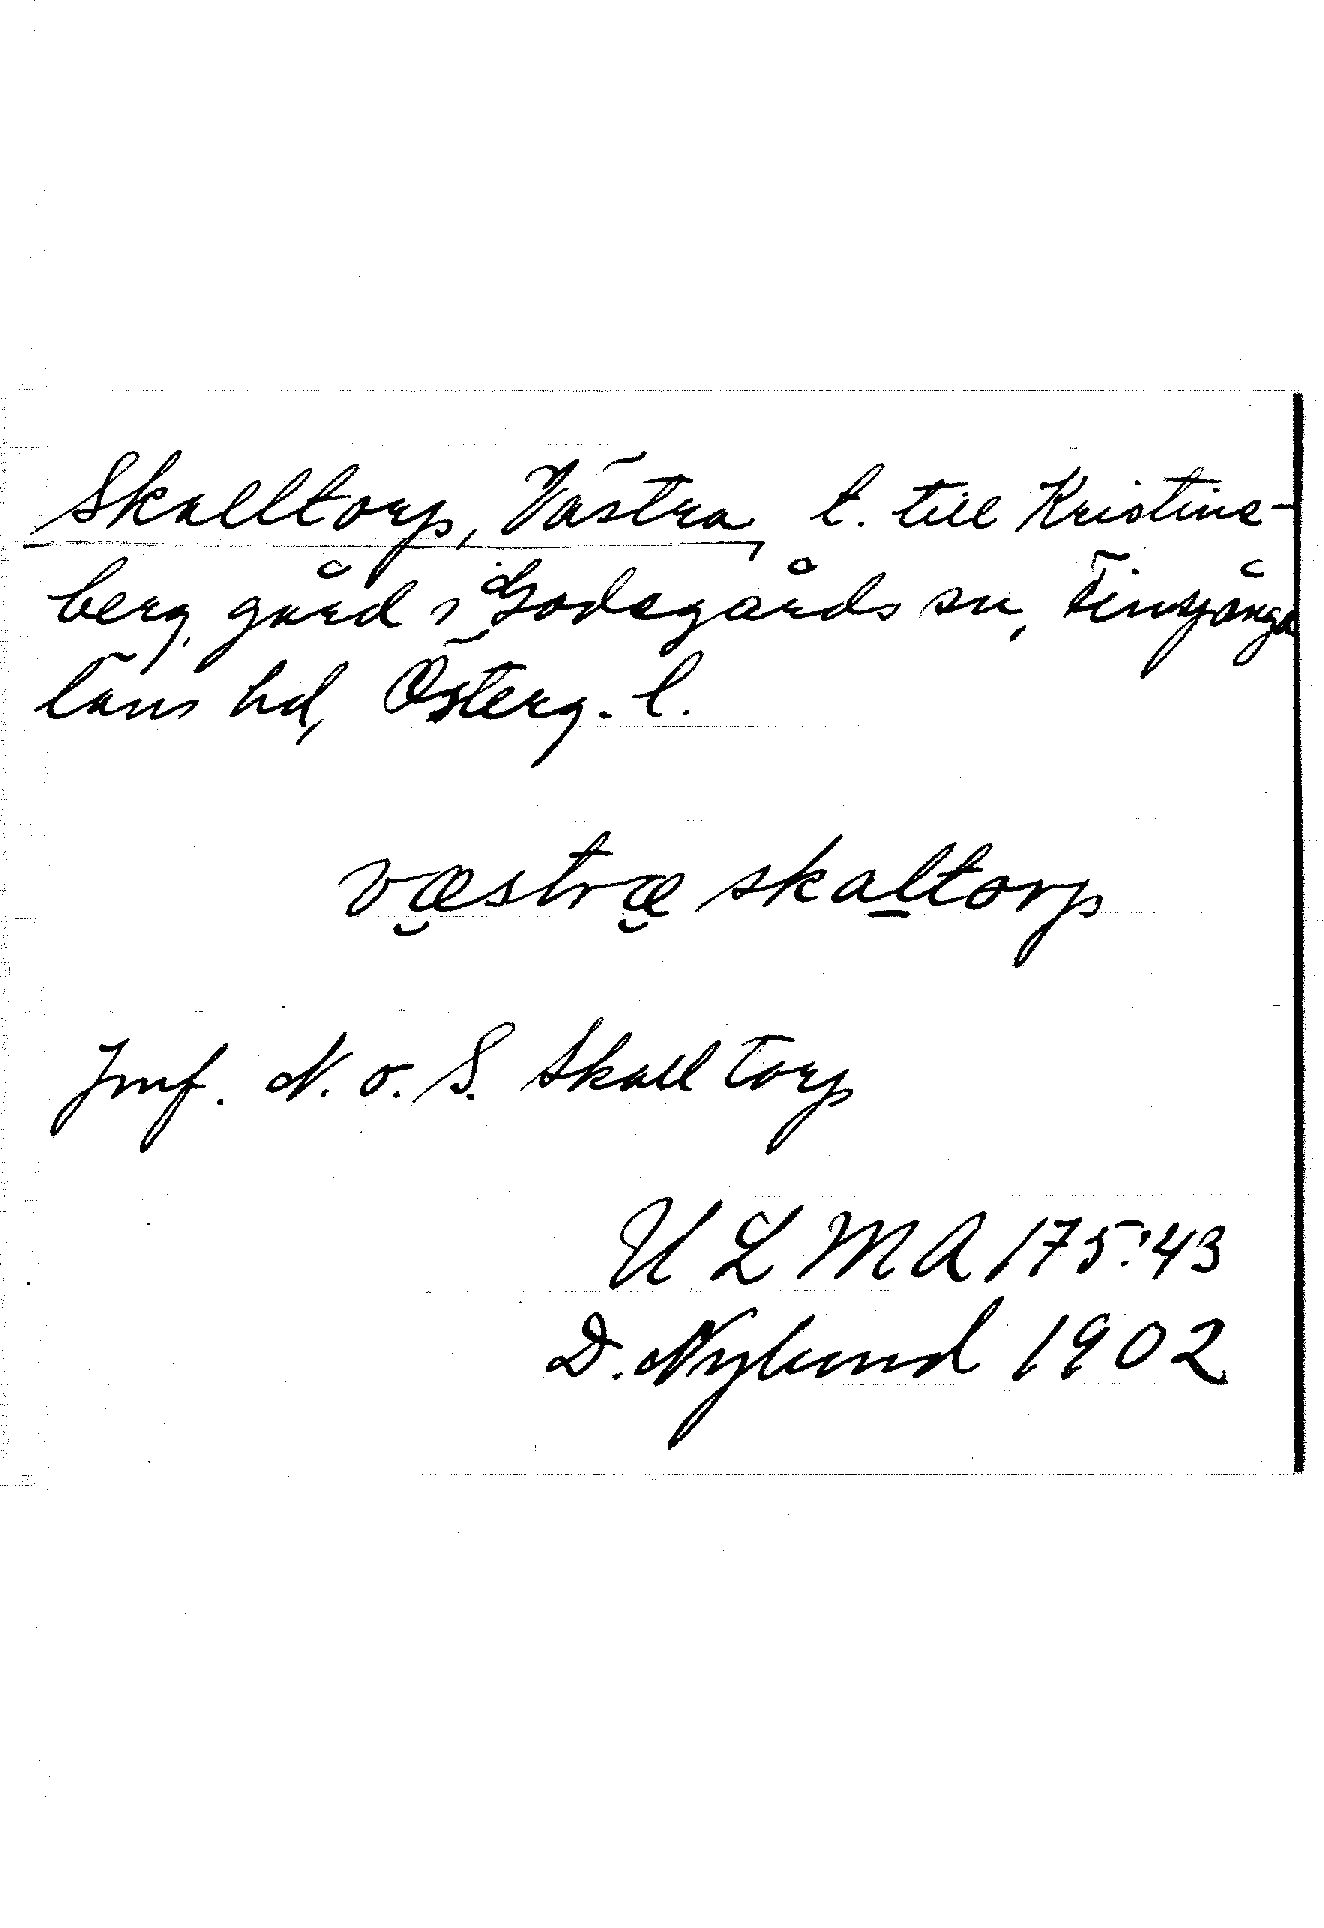 Skalltorp, Västra, t. till Kristine-
berg, gård i Godegårds sn, Finspånga
läns hd, Österg. l.
væ̮stræ̮ ska̲ltorp
Jmf. N. o. S. Skalltorp
ULMA 175:43
D. Nylund 1902